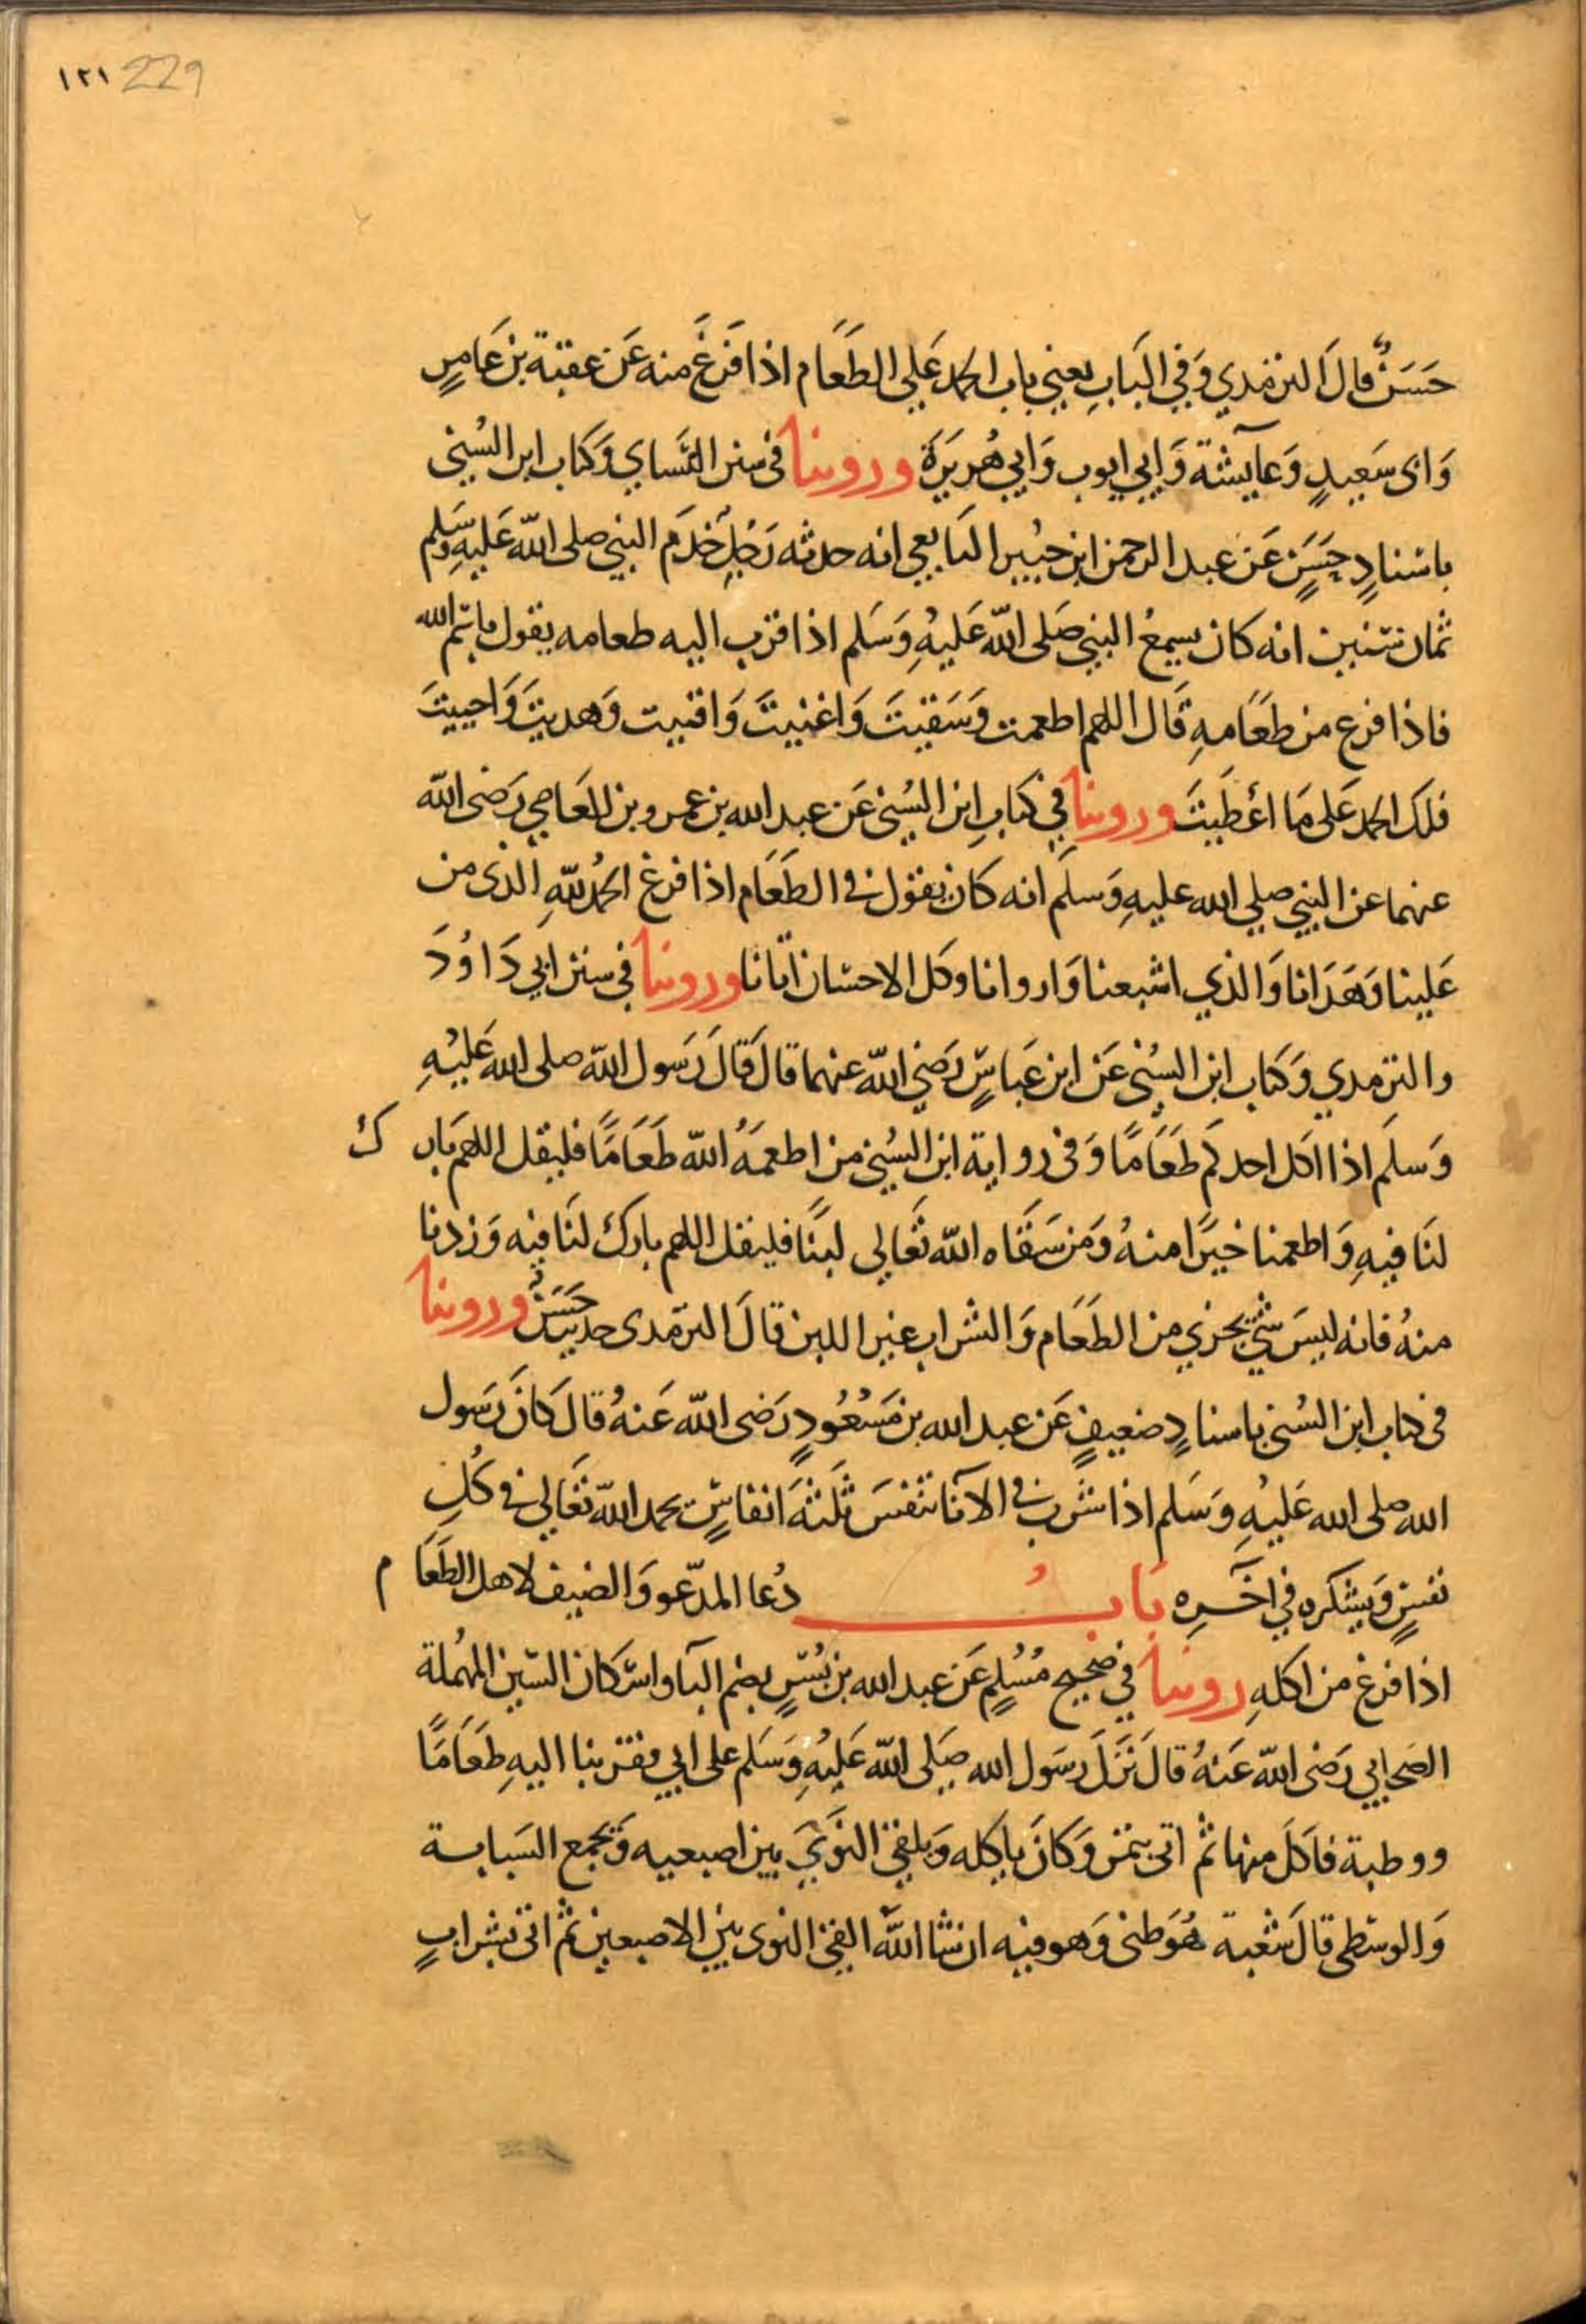 ١٢١ 229
حَسَنٌ قالَ الترمذي وَفي البَابِ يعني باب الحمد عَلي الطَعَام اذا فَرَغَ منه عَن عقبة بن عَامرٍ
وَابى سَعيدٍ وَعآيشة وَابي ايوب وَابي هُريرَة وروينا في سنن النَساي وَكتاب ابن السُني
باسنادٍ حَسَنٍ عَن عبد الرحمن ابن جبُير التابعي انه حدثه رَجُل خَدَم النبي صلى الله عَليهِ وسَلم
ثمان سنين انه كان يسمعُ النبي صَلى الله عَليهُ وَسَلم اذا قرب اليه طعامه يقول بسم الله
فاذا فرع من طعَامهِ قَال اللهم اطعمت وَسَقيتَ وَاغنيتَ وَاقنيت وَهديتَ وَاحييتَ
فلكَ الحمد عَلى مَا أعْطَيتَ وروينا في كتابِ ابن السُني عَن عبد الله بن عمرو بن العَاصي رَضى الله
عنهما عن النبي صلي الله عليهِ وَسلَم انه كان يقول في الطَعَام اذا فرغ الحمُد للهِ الذى من
عَلينا وَهَدَانا وَالذي اشبعنا وَاروانا وكل الاحسَان اتانا وروينا في سنن ابي دَاوُدَ
والترمدي وَكتاب ابن السُني عَن ابن عَباسٍ رَضي الله عنهما قالَ قَالَ رَسول الله صلى الله عَليْهِ
وَسلَم اذا اكل احدكم طَعَامًا وَفى رواية ابن السُني من اطعمَهُ الله طَعَامًا فليقل اللهم بَارك
لنَا فيهِ وَاطعمنا خيرًا منهُ وَمَن سَقَاه الله تعَالي لبنًا فليقل اللهم بارك لنَا فيه وَزدنا
منهُ فانه ليسَ شيٌ يجزي من الطَعَام وَالشراب غير اللبن قالَ الترمدى حديث حَسَنٌ وروينا
في كتاب ابن السُني باسنادٍ ضعيفٍ عَن عبد الله بن مَسْعُودٍ رَضى الله عَنهُ قالَ كانَ رَسول
الله صلى الله عَليْهِ وَسَلم اذا شرب في الآنا تنفسَ ثلَثةَ انفاسٍ يحمد الله تعَالي في كُلِ
نفسٍ وَيشكره في اخَره بَابُ دُعا المدّعو وَالضيف لاهل الطَعَام
اذا فرغ من اكلهِ روينا في صحيح مُسُلمٍ عَن عبد الله بن بُسٍر بضم البآ واسكان السّين المهُملة
الصَحابي رَضى الله عَنهُ قالَ نَزَلَ رَسَول الله صَلى الله عَليْهِ وَسَلم على ابي فقربنا اليهِ طعَامًا
ووطبة فاكَلَ منها ثم اتى بتمر وَكانَ ياكله وَيلقي النوَيَ بين اصبعيه وَيجمع السَبابة
وَالوسَطى قالَ شعُبة هُوَ ظنى وَهو فيه ان شا الله القى النوى بين الاصبعين ثم اتى بشرابٍ